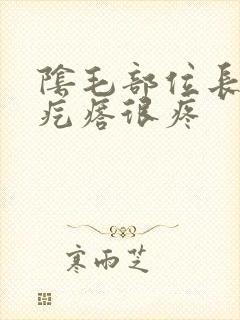 陰毛部位長
疙瘩很疼
寒雨芝